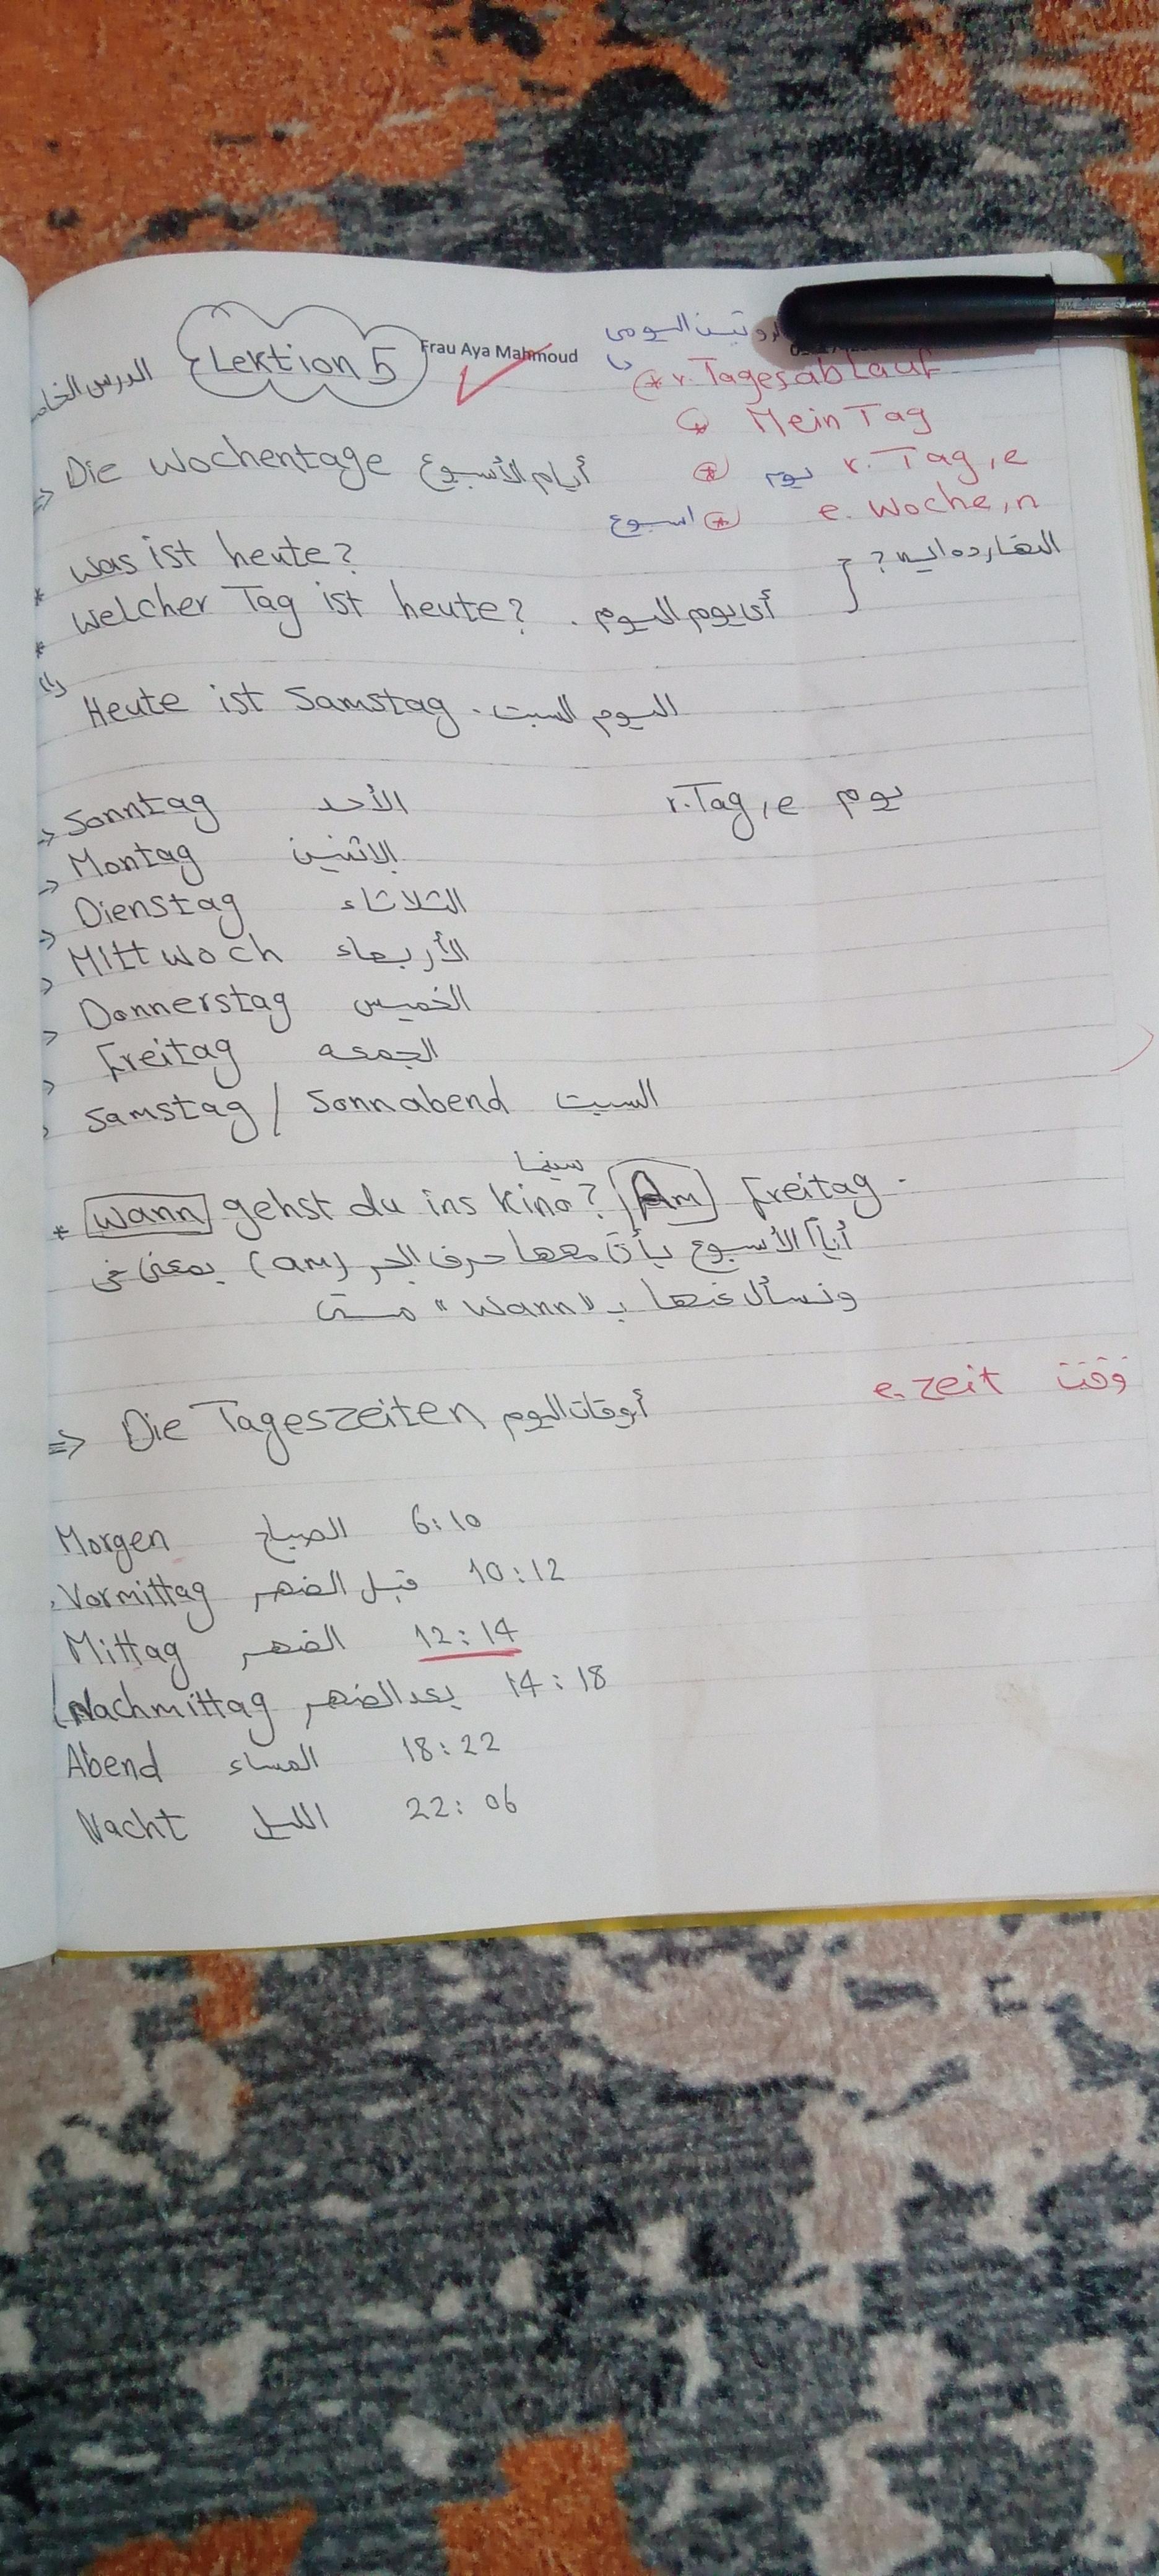 الدرس الخامس
Lektion 5
Frau Aya Mahmoud
روتين اليومى
r. Tagesablauf
Mein Tag
يوم r. Tag, e
اسبوع e. Woche, n
=> Die Wochentage أيام الأسبوع
* was ist heute? النهارده ايه؟
* welcher Tag ist heute? . أى يوم اليوم
Heute ist Samstag . اليوم السبت
-> Sonntag الأحد r. Tag, e يوم
-> Montag الإثنين
-> Dienstag الثلاثاء
-> Mittwoch الأربعاء
-> Donnerstag الخميس
-> Freitag الجمعه
Samstag / Sonnabend السبت
سينما
* wann gehst du ins Kino? Am Freitag .
أيام الأسبوع يأتى معها حرف الجر (am) بمعنى فى
ونسأل عنها بـ "wann" متى
e. zeit وقت
=> Die Tageszeiten أوقات اليوم
Morgen الصباح 6:10
Vormittag قبل الضهر 10:12
Mittag الضهر 12:14
Nachmittag بعد الضهر 14:18
Abend المساء 18:22
Nacht الليل 22:06